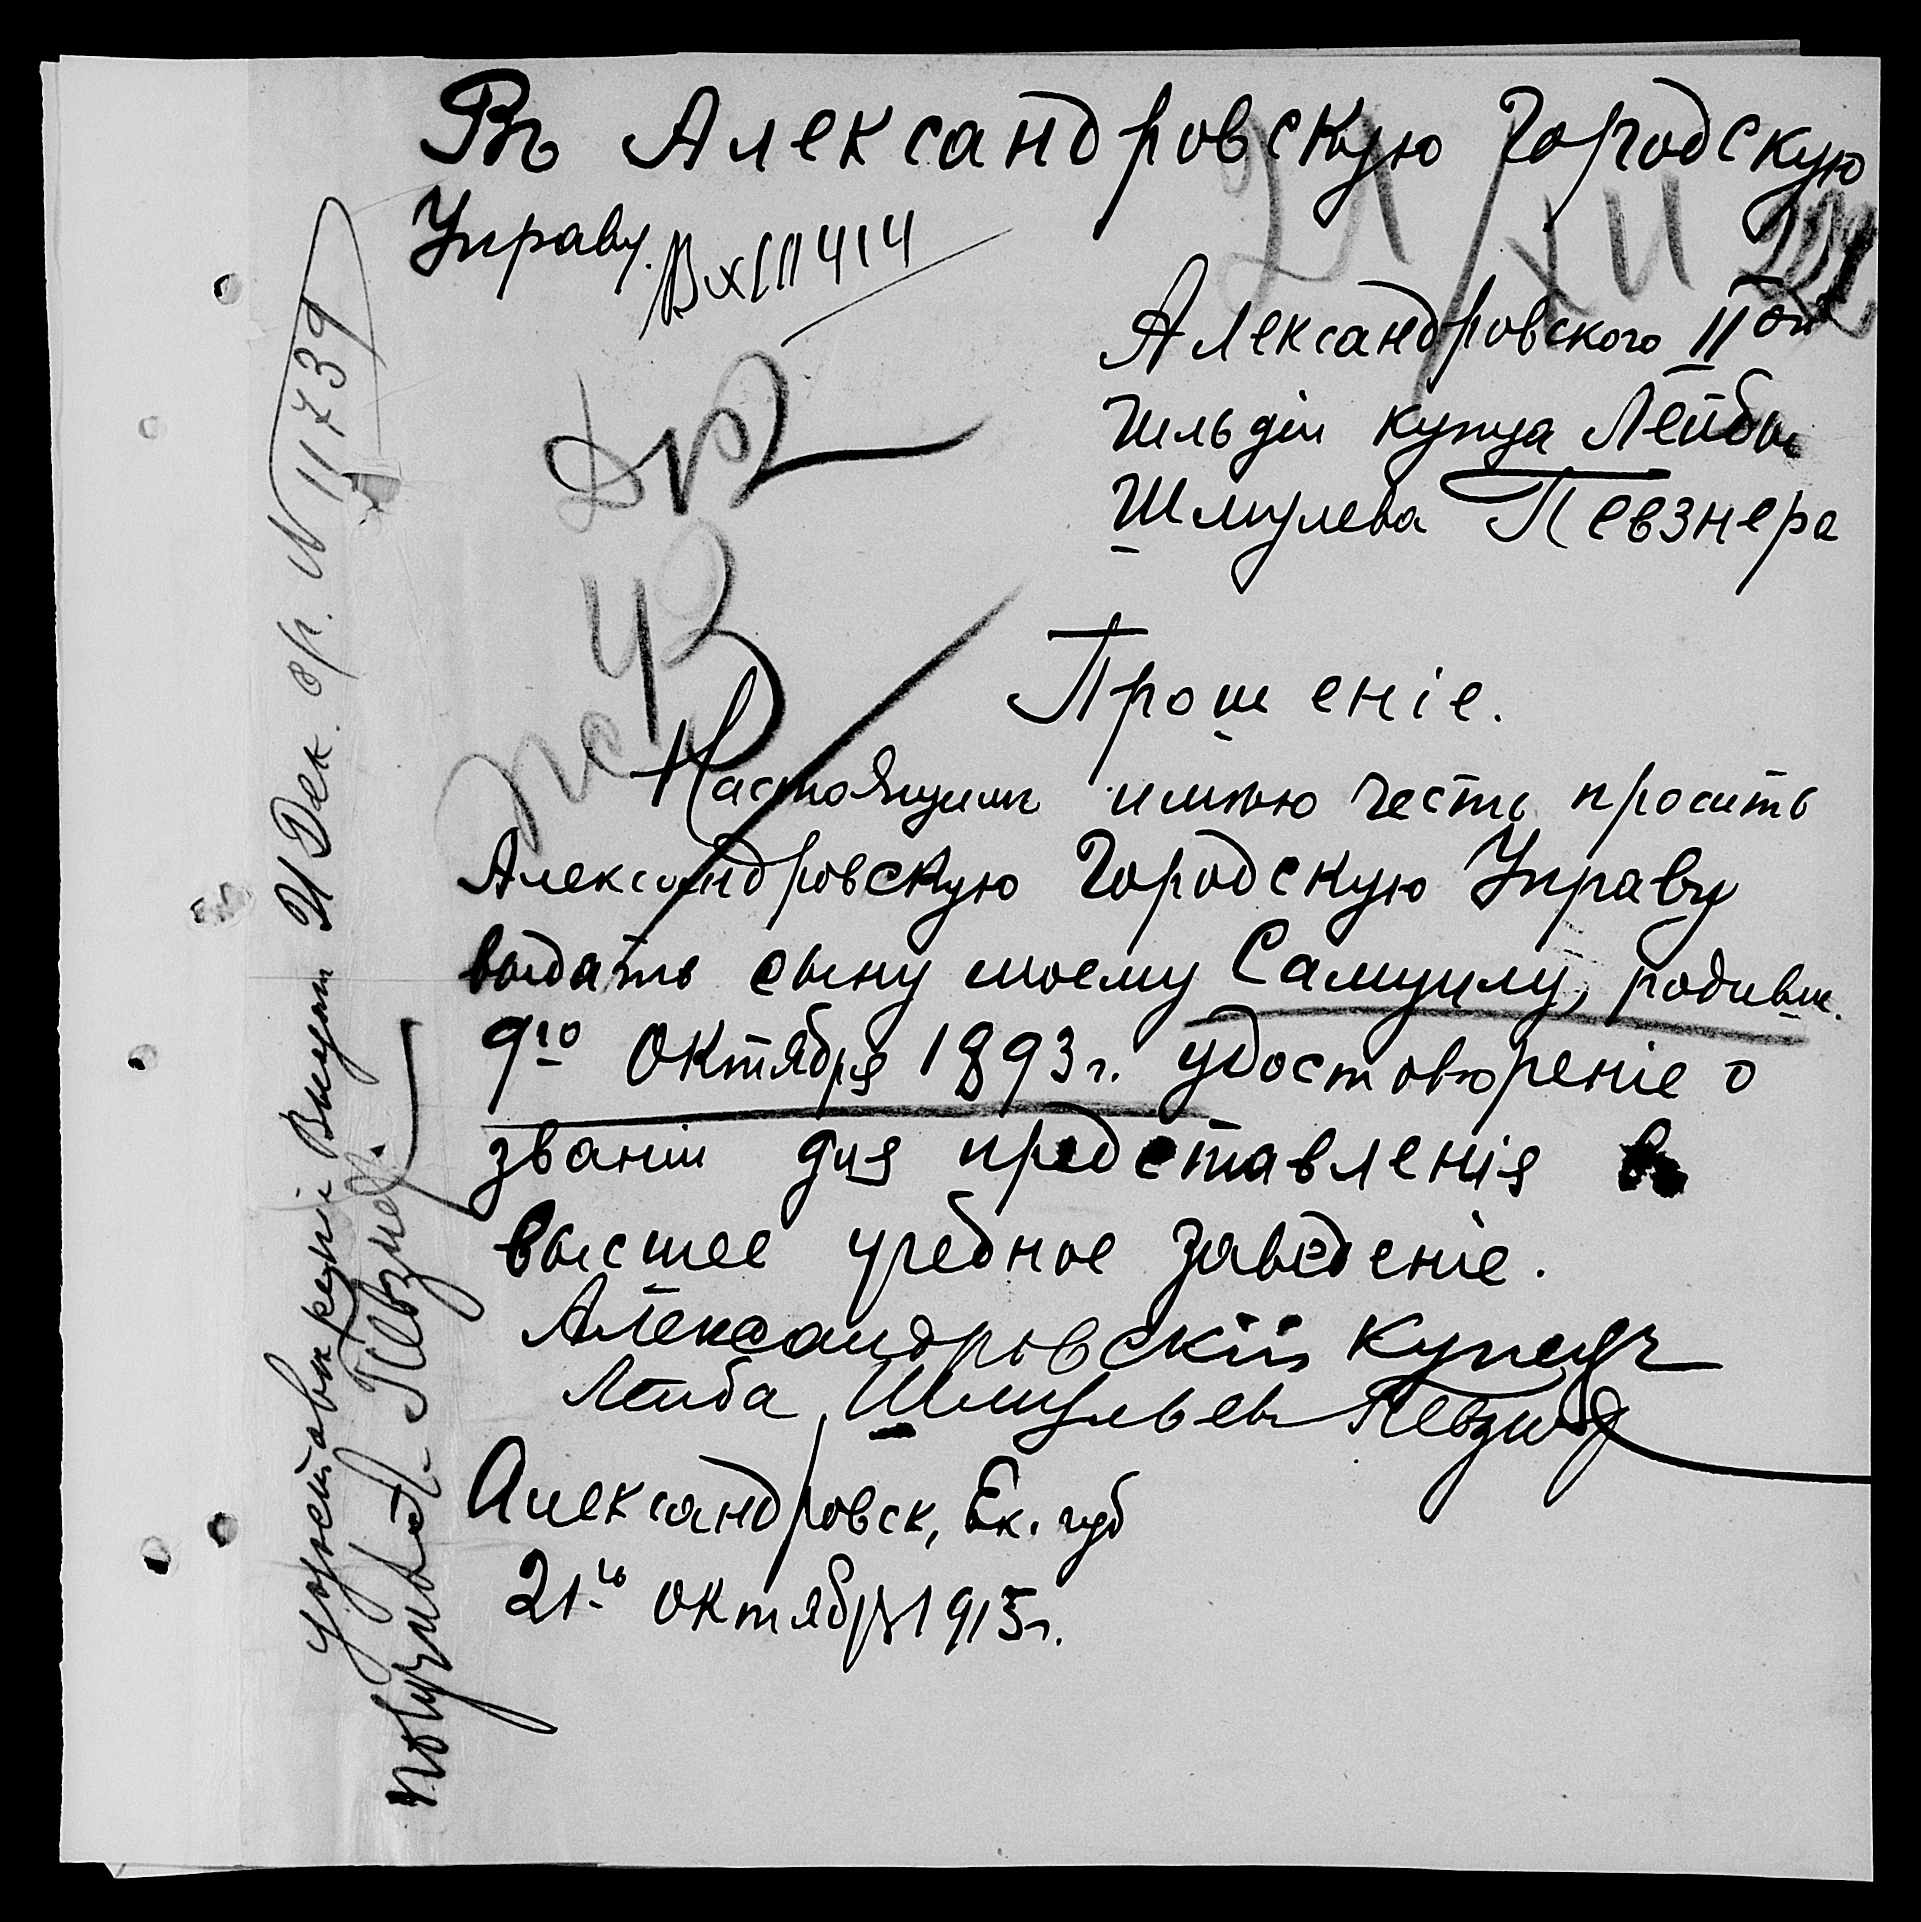 Въ Александровскую Городскую
Управу.
Вх 11414
21/XII
Александровского II ой
Гильдіи купца Лейбы
Шмулева Певзнера
Прошеніе.
Настоящимъ имѣю честь просить
Александровскую Городскую Управу
выдать сыну моему Самуилу, родивш.
9го Октября 1893 г. удостовѣреніе о
званіи для представленія въ
высшее учебное заведеніе.
Александровскій Купецъ
Лейба Шмульевъ Певзнер
Александровск, Ек. губ
21го октября 1915 г.
удостовѣреніе 21 Дек. N 11739
получилъ Л. Певзнер.